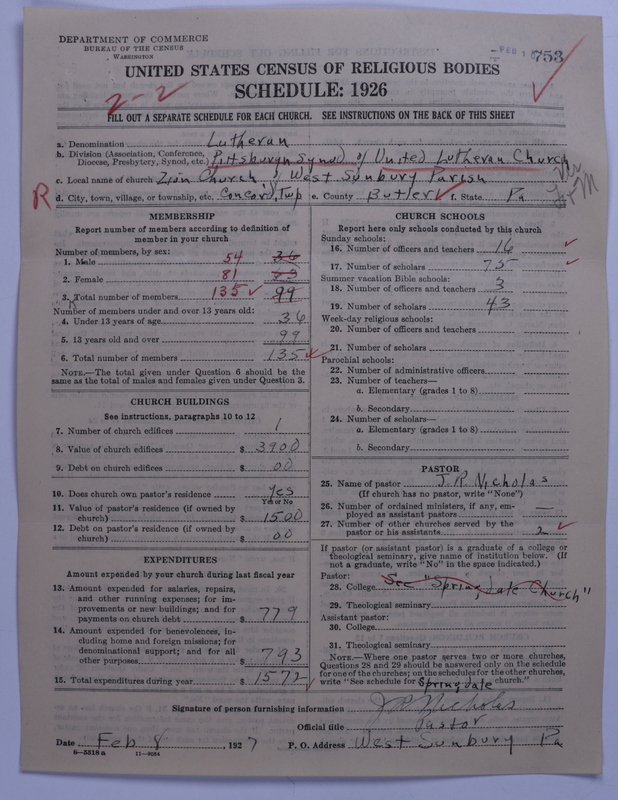 DEPARTMENT OF COMMERCE
BUREAU OF THE CENSUS
WASHINGTON
FEB 1
753
UNITED STATES CENSUS OF RELIGIOUS BODIES
SCHEDULE: 1926
2-2
FILL OUT A SEPARATE SCHEDULE FOR EACH CHURCH. SEE INSTRUCTIONS ON THE BACK OF THIS SHEET
a. Denomination Lutheran
b. Division (Association, Conference, Diocese, Presbytery, Synod, etc.) Pittsburgh Synod of United Lutheran Church
c. Local name of church Zion Church of West Sunbury Parish
R
d. City, town, village, or township, etc. Concord, Twp e. County Butler f. State Pa
MEMBERSHIP
Report number of members according to definition of
member in your church
Number of members, by sex:
1. Male 54 36
2. Female 81 63
3. Total number of members 135 99
Number of members under and over 13 years old:
4. Under 13 years of age 36
5. 13 years old and over 99
6. Total number of members 135
NOTE.—The total given under Question 6 should be the
same as the total of males and females given under Question 3.
CHURCH BUILDINGS
See instructions, paragraphs 10 to 12
7. Number of church edifices 1
8. Value of church edifices $ 3900
9. Debt on church edifices $ 00
10. Does church own pastor's residence Yes
Yes or No
11. Value of pastor's residence (if owned by
church) $ 1500
12. Debt on pastor's residence (if owned by
church) $ 00
EXPENDITURES
Amount expended by your church during last fiscal year
13. Amount expended for salaries, repairs,
and other running expenses; for im-
provements or new buildings; and for
payments on church debt $ 779
14. Amount expended for benevolences, in-
cluding home and foreign missions; for
denominational support; and for all
other purposes $ 793
15. Total expenditures during year $ 1572
CHURCH SCHOOLS
Report here only schools conducted by this church
Sunday schools:
16. Number of officers and teachers 16
17. Number of scholars 75
Summer vacation Bible schools:
18. Number of officers and teachers 3
19. Number of scholars 43
Week-day religious schools:
20. Number of officers and teachers
21. Number of scholars
Parochial schools:
22. Number of administrative officers
23. Number of teachers—
a. Elementary (grades 1 to 8)
b. Secondary
24. Number of scholars—
a. Elementary (grades 1 to 8)
b. Secondary
PASTOR
25. Name of pastor J. R. Nicholas
(If church has no pastor, write "None")
26. Number of ordained ministers, if any, em-
ployed as assistant pastors —
27. Number of other churches served by the
pastor or his assistants 2
If pastor (or assistant pastor) is a graduate of a college or
theological seminary, give name of institution below. (If
not a graduate, write "No" in the space indicated.)
Pastor:
28. College See "Springdale Church"
29. Theological seminary
Assistant pastor:
30. College
31. Theological seminary
NOTE.—Where one pastor serves two or more churches,
Questions 28 and 29 should be answered only on the schedule
for one of the churches; on the schedules for the other churches,
write "See schedule for Springdale church."
Signature of person furnishing information J R Nicholas
Official title Pastor
Date Feb 8, 1927 P. O. Address West Sunbury Pa
8—5518 a 11—9084